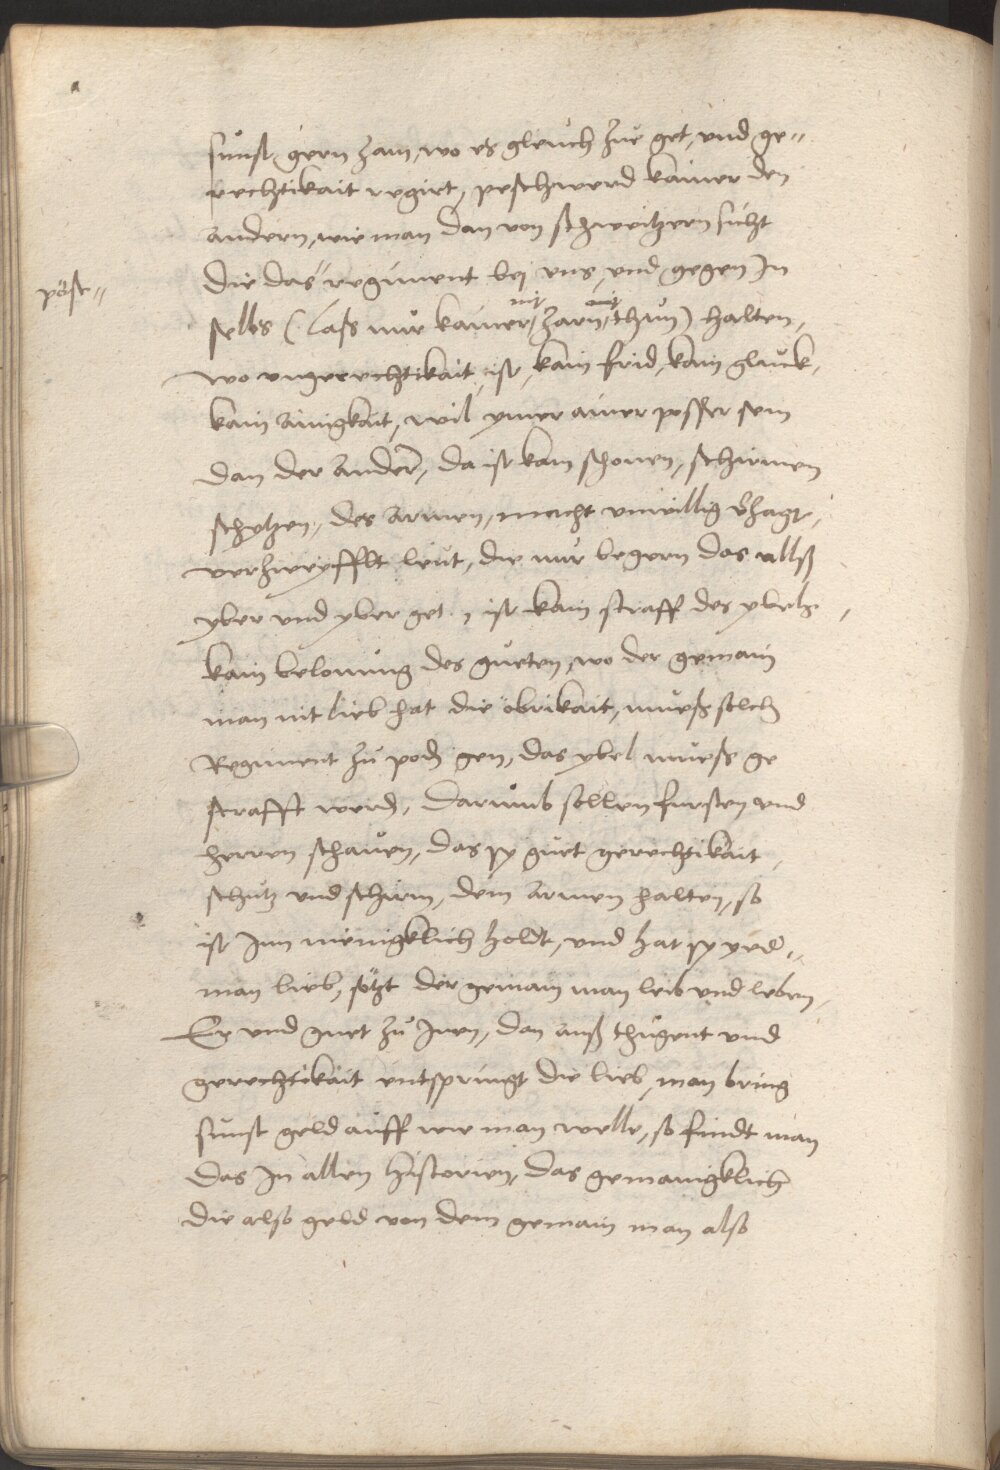 sunst gern zam, wo es gleuch zue get, und ge-
rechtikait regirt, peschwerd kainer den
andern, wie man dan von schweitzern sicht
die das regiment bei uns, und gegen In
pöse-
selbs (lass nur kainer nit zarn, thun) halten,
wo ungerechtikait, ist, kain frid, kain gluck,
kain ainigkait, wil ymer ainer pesser sein
dan der ander, da ist kain schonen, schirmen
schytzen, des armen, macht unwillig verzagt,
verzweyfflt leut, die nur begern das allss
yber und yber get, ist kain straff des ybels,
kain belonung des gueten, wo der gemain
man nit lieb hat die öbrikait, muess solch
Regiment zu poden gen, das ybel muess ge
strafft werden, darumb sollen fursten und
herren schauen, das sy guet gerechtikait
schutz und schirm, dem armen halten, so
ist Inn menigklich holdt, und hat sy yeder-
man lieb, sötzt der gemain man leib und leben,
Er und guet zu Inen, dan auss thugent und
gerechtikait entspringt die lieb, man bring
sunst geld auff wie man welle, so findt man
das In allen historien, das gemainigklich
die also geld von dem gemain man also